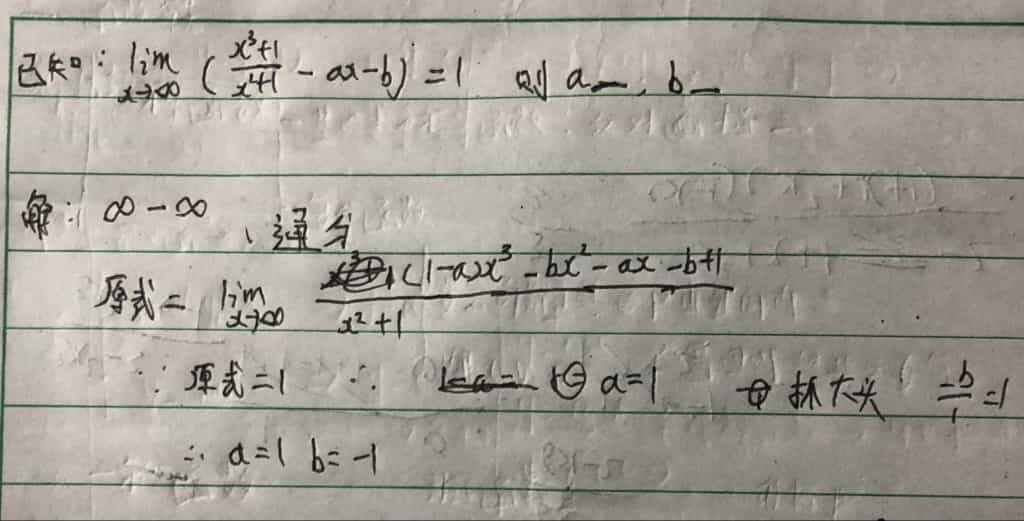 已知: lim x→∞ (x³+1/x²+1 - ax - b) = 1 则 a__, b__
解: ∞ - ∞ , 通分
原式 = lim x→∞ (1-a)x³ - bx² - ax - b+1 / x²+1
∵ 原式 = 1 ∴ ① a=1 ② 抓大头 -b/1 = 1
∴ a=1 b=-1